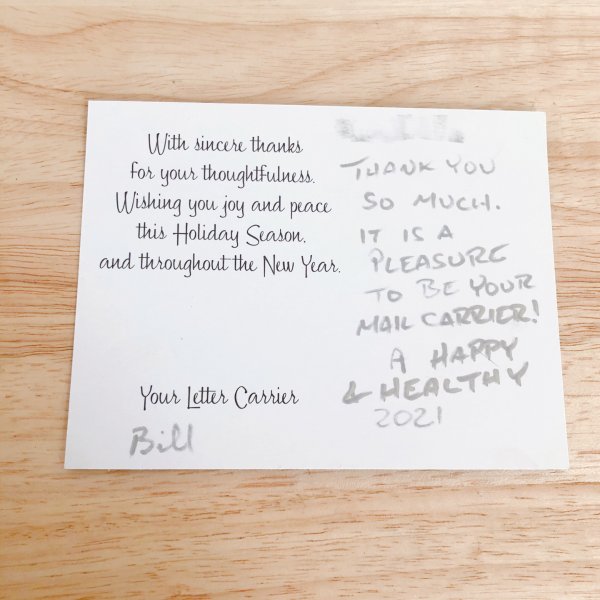 With sincere thanks
for your thoughtfulness.
Wishing you joy and peace
this Holiday Season,
and throughout the New Year.
Your Letter Carrier
Bill
THANK YOU
SO MUCH.
IT IS A
PLEASURE
TO BE YOUR
MAIL CARRIER!
A HAPPY
& HEALTHY
2021